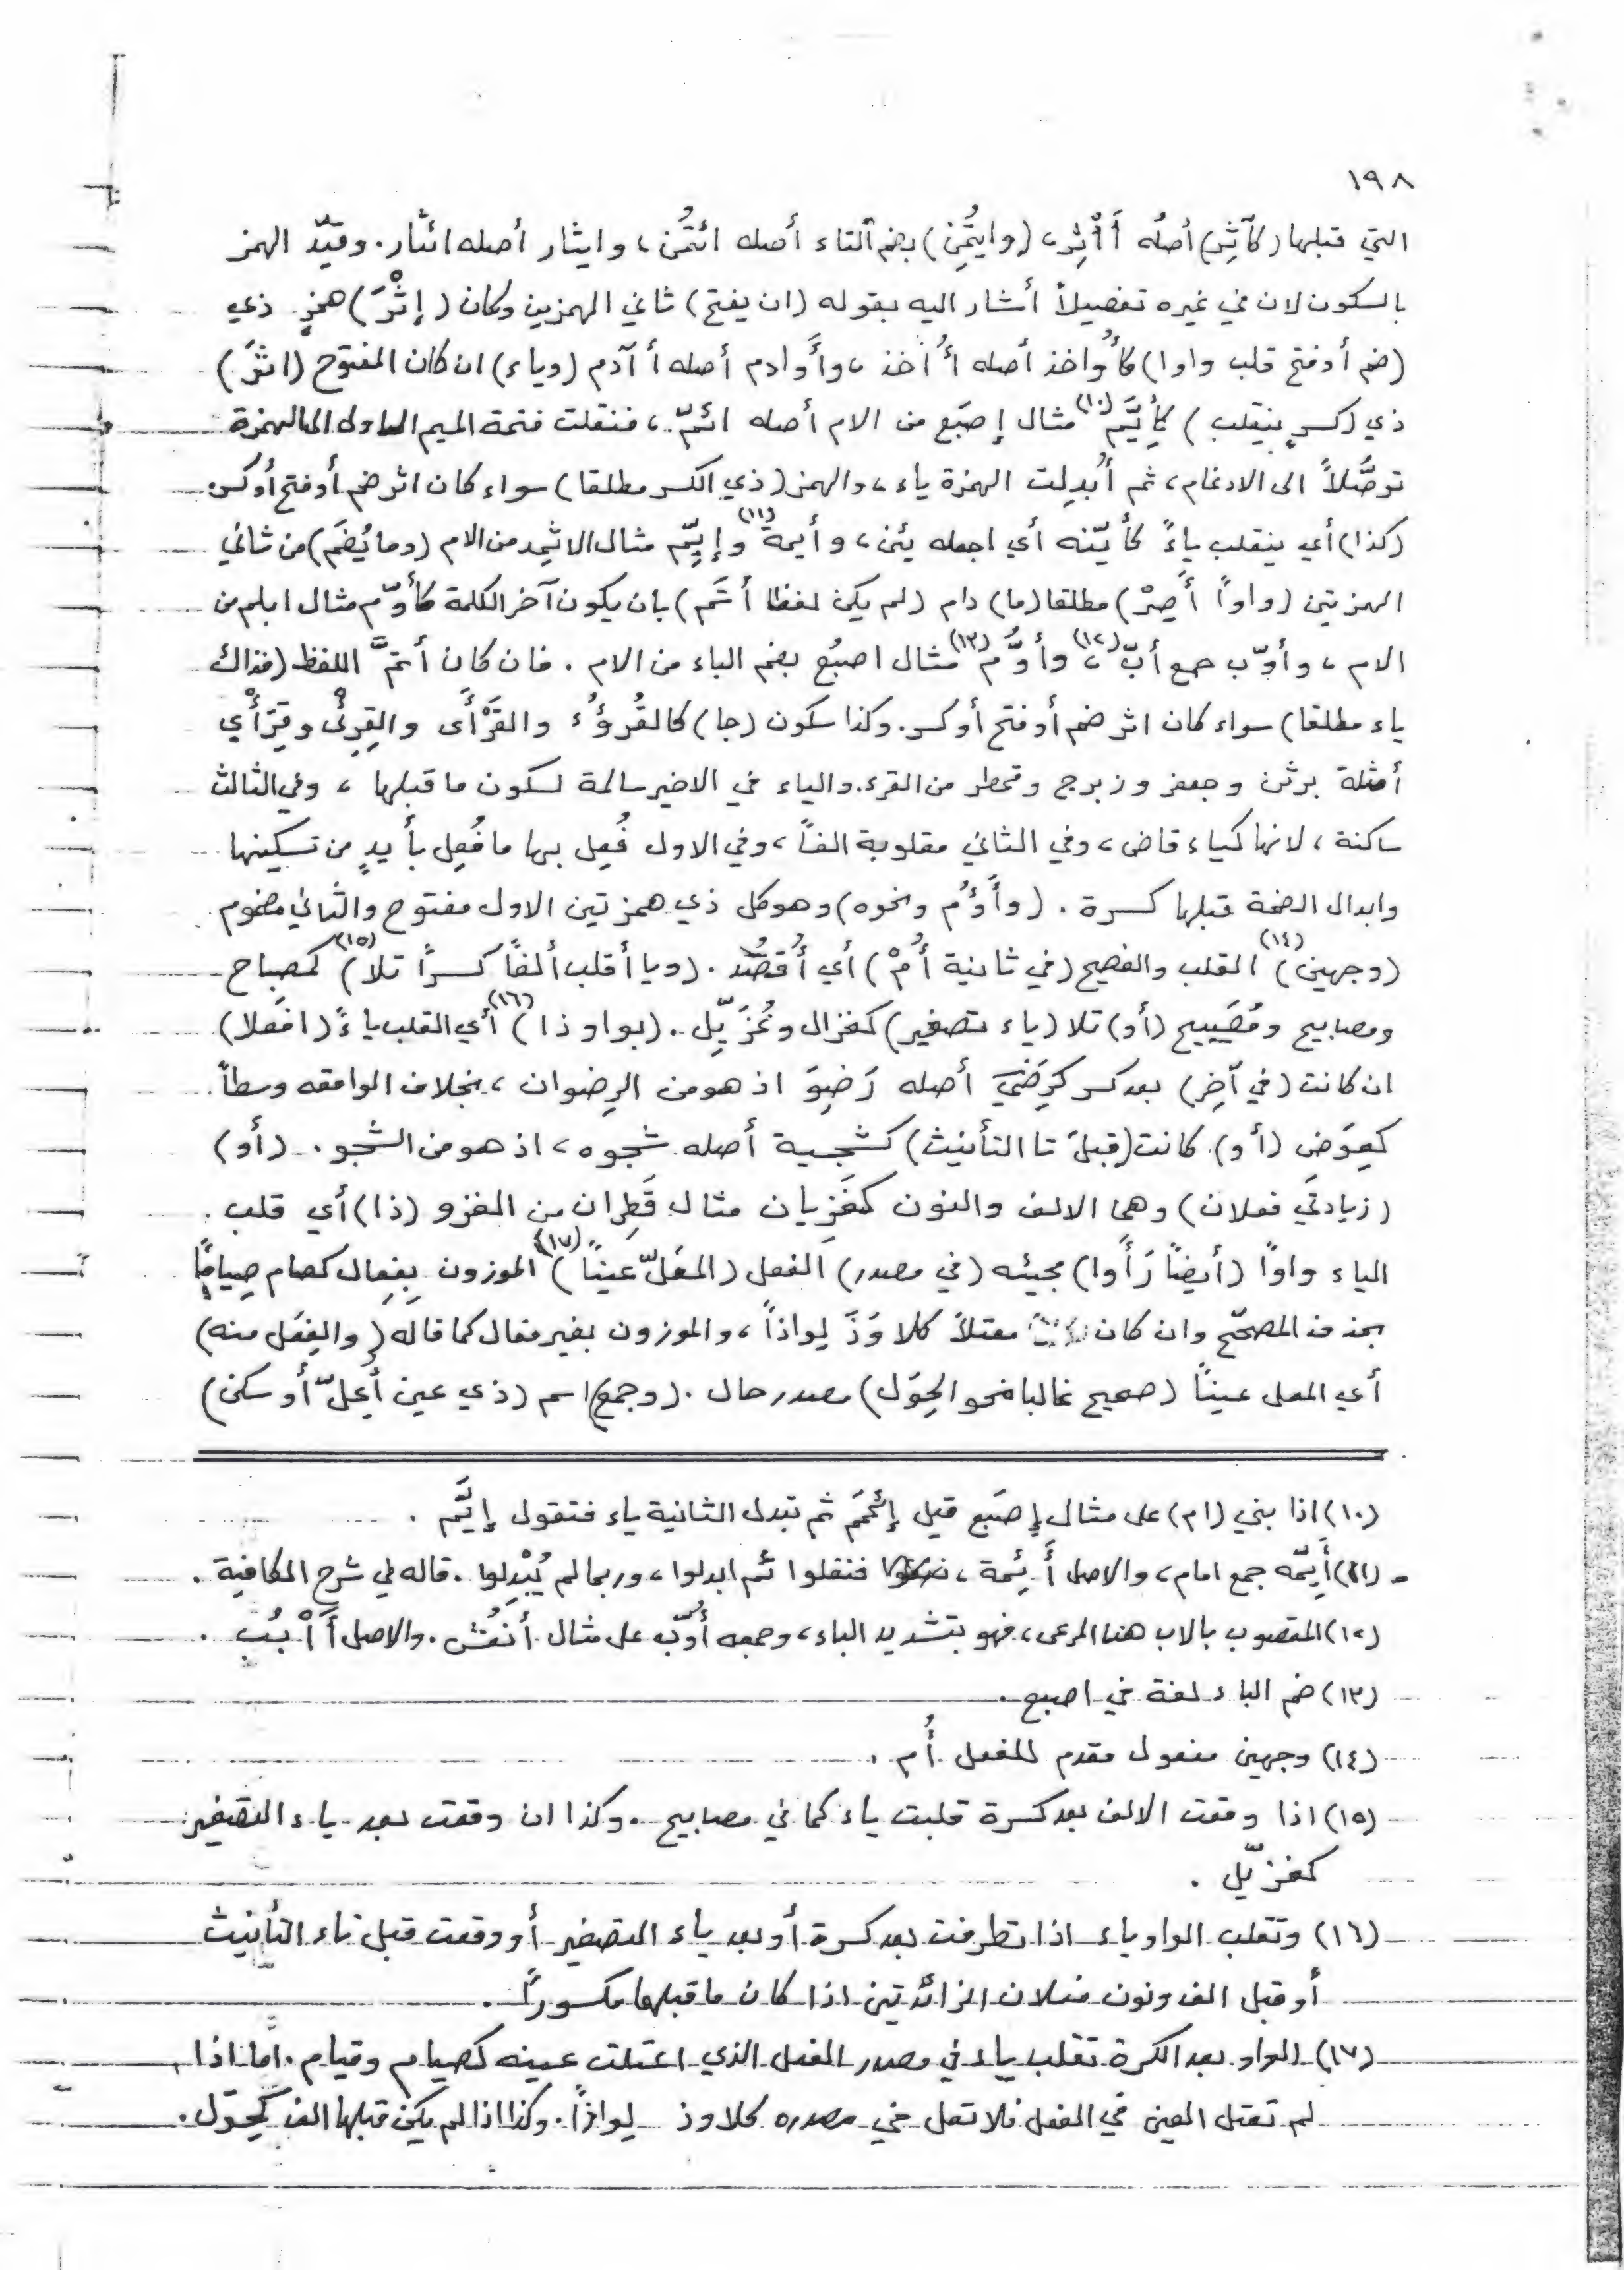 ١٩٨
التي قبلها (كآثِر) أصلُه أَأْثِر، (وايتُمِن) بضم التاء أصله ائتُمن، وايثار أصله ائثار. وقيّد الهمز
بالسكون لان في غيره تفصيلاً أشار اليه بقوله (ان يفتح) ثاني الهمزين وكان (إثْرَ) همزٍ ذي
(ضم أو فتح قلب واوا) كأُواخذ أصله أُأَاخذ، وأَوادم أصله أ آدم (وياء) ان كان المفتوح (اثرَ)
ذي (كسرٍ ينقلب) كإيَّم (١٠) مثال إصبَع من الام أصله ائممّ، فنقلت فتحة الميم الاولى الى الهمزة
توصُّلاً الى الادغام، ثم أُبدِلت الهمزة ياء، والهمز (ذي الكسر مطلقا) سواء كان اثر ضم أو فتح أو كسر
(كذا) أي ينقلب ياءً كأيِنّه أي اجعله يئن، وأيمة (١١) وإيِمّ مثال الاثمِد من الام (وما يُضَم) من ثاني
الهمزتين (واواً أَصِرْ) مطلقا (ما) دام (لم يكن لفظا أتَم) بان يكون آخر الكلمة كأوُمّ مثال ابلم من
الام، وأوُبّ جمع أبّ (١٢)، وأوُمّ (١٣) مثال اصبُع بضم الباء من الام. فان كان أتمَّ اللفظ (فذاك
ياء مطلقا) سواء كان اثر ضم أو فتح أو كسر. وكذا سكون (جا) كالقُرؤُء والقَرْأَى والقِرئِي وقِرَأْي
أمثلة برثن وجعفر وزبرج وقمطر من القرء. والياء في الاخير سالمة لسكون ما قبلها، وفي الثالث
ساكنة، لانها كياء قاض، وفي الثاني مقلوبة الفاً، وفي الاول فُعِل بها ما فُعِل بأيدٍ من تسكينها
وابدال الضمة قبلها كسرة. (وأَؤُم ونحوه) وهو كل ذي همزتين الاول مفتوح والثاني مضموم
(وجهين) (١٤) القلب والفصيح (في ثانية أُمْ) أي أُقصُد. (ويا أقلب ألفاً كسراً تلا) (١٥) كمصباح
ومصابيح ومُصَيبيح (أو) تلا (ياء تصغير) كغزال وغُزَيِّل. (بواو ذا) (١٦) أي القلب ياءً (افعَلا)
ان كانت (في آخِر) بعد كسر كرَضيَ أصله رَضِوَ اذ هو من الرضوان، بخلاف الواقعه وسطاً
كعِوَض (أو) كانت (قبلَ تا التأنيث) كشجية أصله شجوه، اذ هو من الشجو. (أو)
(زيادتَي فعلان) وهما الالف والنون كغَزِيان مثال قَطِران من الغزو (ذا) أي قلب
الياء واواً (أيضاً رَأَوا) مجيئه (في مصدر) الفعل (المعَلّ عيناً) (١٧) الموزون بفِعال كصام صِياماً
بخذف المصحّح وان كان معتلاً كلاوَذَ لِواذاً، والموزون بغير فعال كما قال (والفِعَل منه)
أي المعل عيناً (صحيح غالبا نحو الحِوَل) مصدر حال. (وجمع) اسم (ذي عين أُعِلّ أو سكن)
(١٠) اذا بني (ام) على مثال إصبَع قيل إئمَمَ ثم تبدل الثانية ياء فتقول إيَّم.
(١١) أَيِمّه جمع امام، والاصل أَئِمة، فنقلوا ثم ابدلوا، وربما لم يُبْدِلوا. قاله في شرح الكافية.
(١٢) المقصوب بالاب هنا المرعى، فهو بتشديد الباء، وجمعه أوُبّ على مثال أنفُس. والاصل أَأْبُب.
(١٣) ضم الباء لغة في اصبع.
(١٤) وجهين مفعول مقدم للفعل أُم.
(١٥) اذا وقعت الالف بعد كسرة قلبت ياء كما في مصابيح. وكذا ان وقعت بعد ياء التصغير
كغزيّل.
(١٦) وتقلب الواو ياء اذا تطرفت بعد كسرة أو بعد ياء التصغير أو وقعت قبل تاء التأنيث
أو قبل الف ونون فعلان الزائدتين اذا كان ما قبلها مكسوراً.
(١٧) الواو بعد الكسرة تقلب ياء في مصدر الفعل الذي اعتلت عينه كصيام وقيام. اما اذا
لم تعتل العين في الفعل فلا تعل في مصدره كلاوذ لِواذاً. وكذا اذا لم يكن قبلها الف كحِوَل.